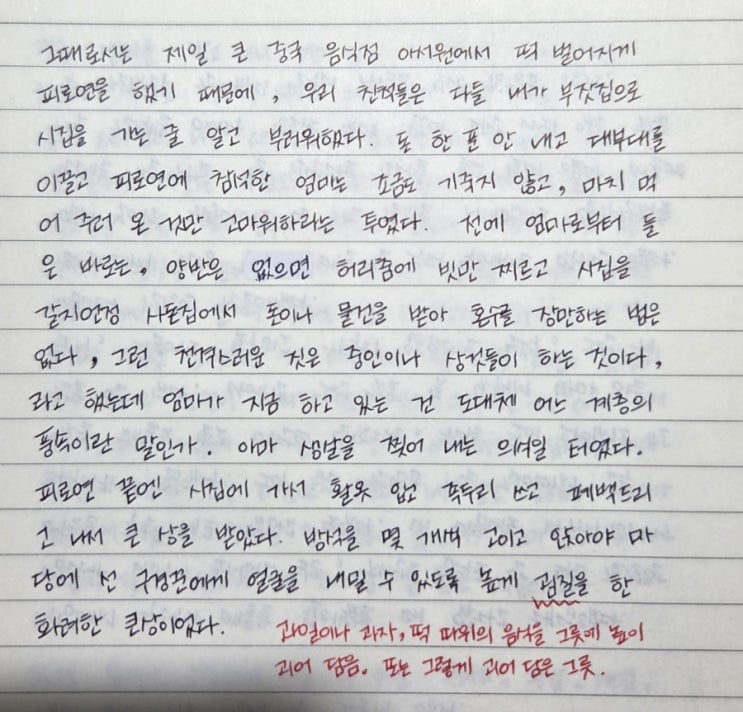 그때로서는 제일 큰 중국 음식점 아서원에서 떡 벌어지게
피로연을 했기 때문에, 우리 친척들은 다들 내가 부잣집으로
시집을 가는 줄 알고 부러워했다. 돈 한 푼 안 내고 대부대를
이끌고 피로연에 참석한 엄마는 조금도 기죽지 않고, 마치 먹
어 주러 온 것만 고마워하라는 투였다. 전에 엄마로부터 들
은 바로는, 양반은 없으면 허리춤에 빗만 찌르고 시집을
갈지언정 사돈집에서 돈이나 물건을 받아 혼수를 장만하는 법은
없다, 그런 천격스러운 짓은 중인이나 상것들이 하는 것이다,
라고 했는데 엄마가 지금 하고 있는 건 도대체 어느 계층의
풍속이란 말인가. 아마 생살을 찢어 내는 의식일 터였다.
피로연 끝엔 시집에 가서 활옷 입고 족두리 쓰고 폐백드리
고 나서 큰 상을 받았다. 방석을 몇 개씩 고이고 앉아야 마
당에 선 구경꾼에게 얼굴을 내밀 수 있도록 높게 굄질을 한
화려한 큰상이었다.
과일이나 과자, 떡 따위의 음식을 그릇에 높이
괴어 담음. 또는 그렇게 괴어 담은 그릇.